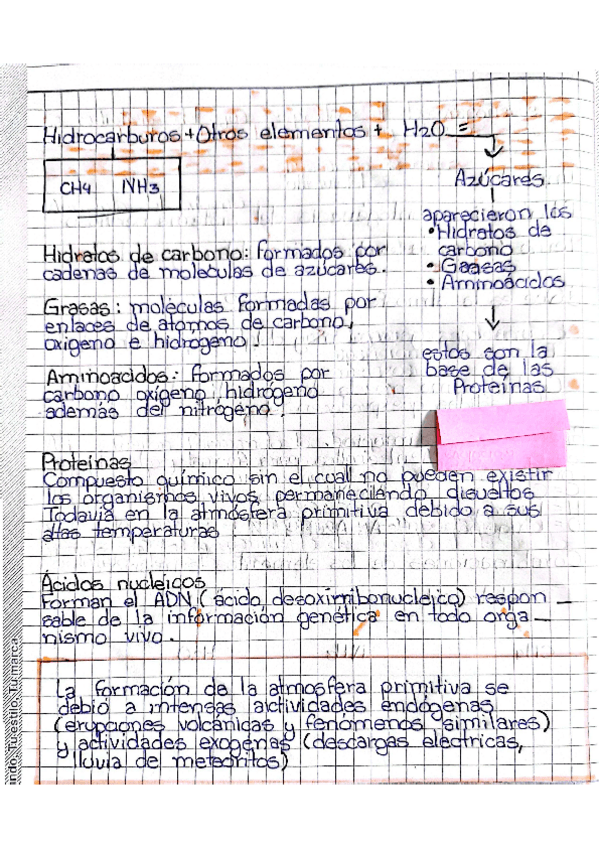 Hidrocarburos + Otros elementos + H2O =
CH4 NH3
Azúcares
aparecieron los
• Hidratos de
carbono
• Grasas
• Aminoácidos
estos son la
base de las
Proteinas
Hidratos de carbono: formados por
cadenas de moleculas de azúcares.
Grasas: moléculas formadas por
enlaces de atomos de carbono,
oxigeno e hidrogeno.
Aminoacidos: formados por
carbono oxigeno, hidrógeno
además del nitrógeno.
Proteinas
Compuesto químico sin el cual no pueden existir
los organismos vivos permaneciendo disueltos
Todavia en la atmósfera primitiva debido a sus
altas temperaturas
Ácidos nucleicos
Forman el ADN (ácido desoxirribonucleico) respon_
sable de la información genética en todo orga_
nismo vivo.
La formación de la atmosfera primitiva se
debió a intensas actividades endógenas
(erupciones volcánicas y fenómenos similares)
y actividades exogenas (descargas electricas,
lluvia de meteoritos)
undo, Tu estilo, Tu marca